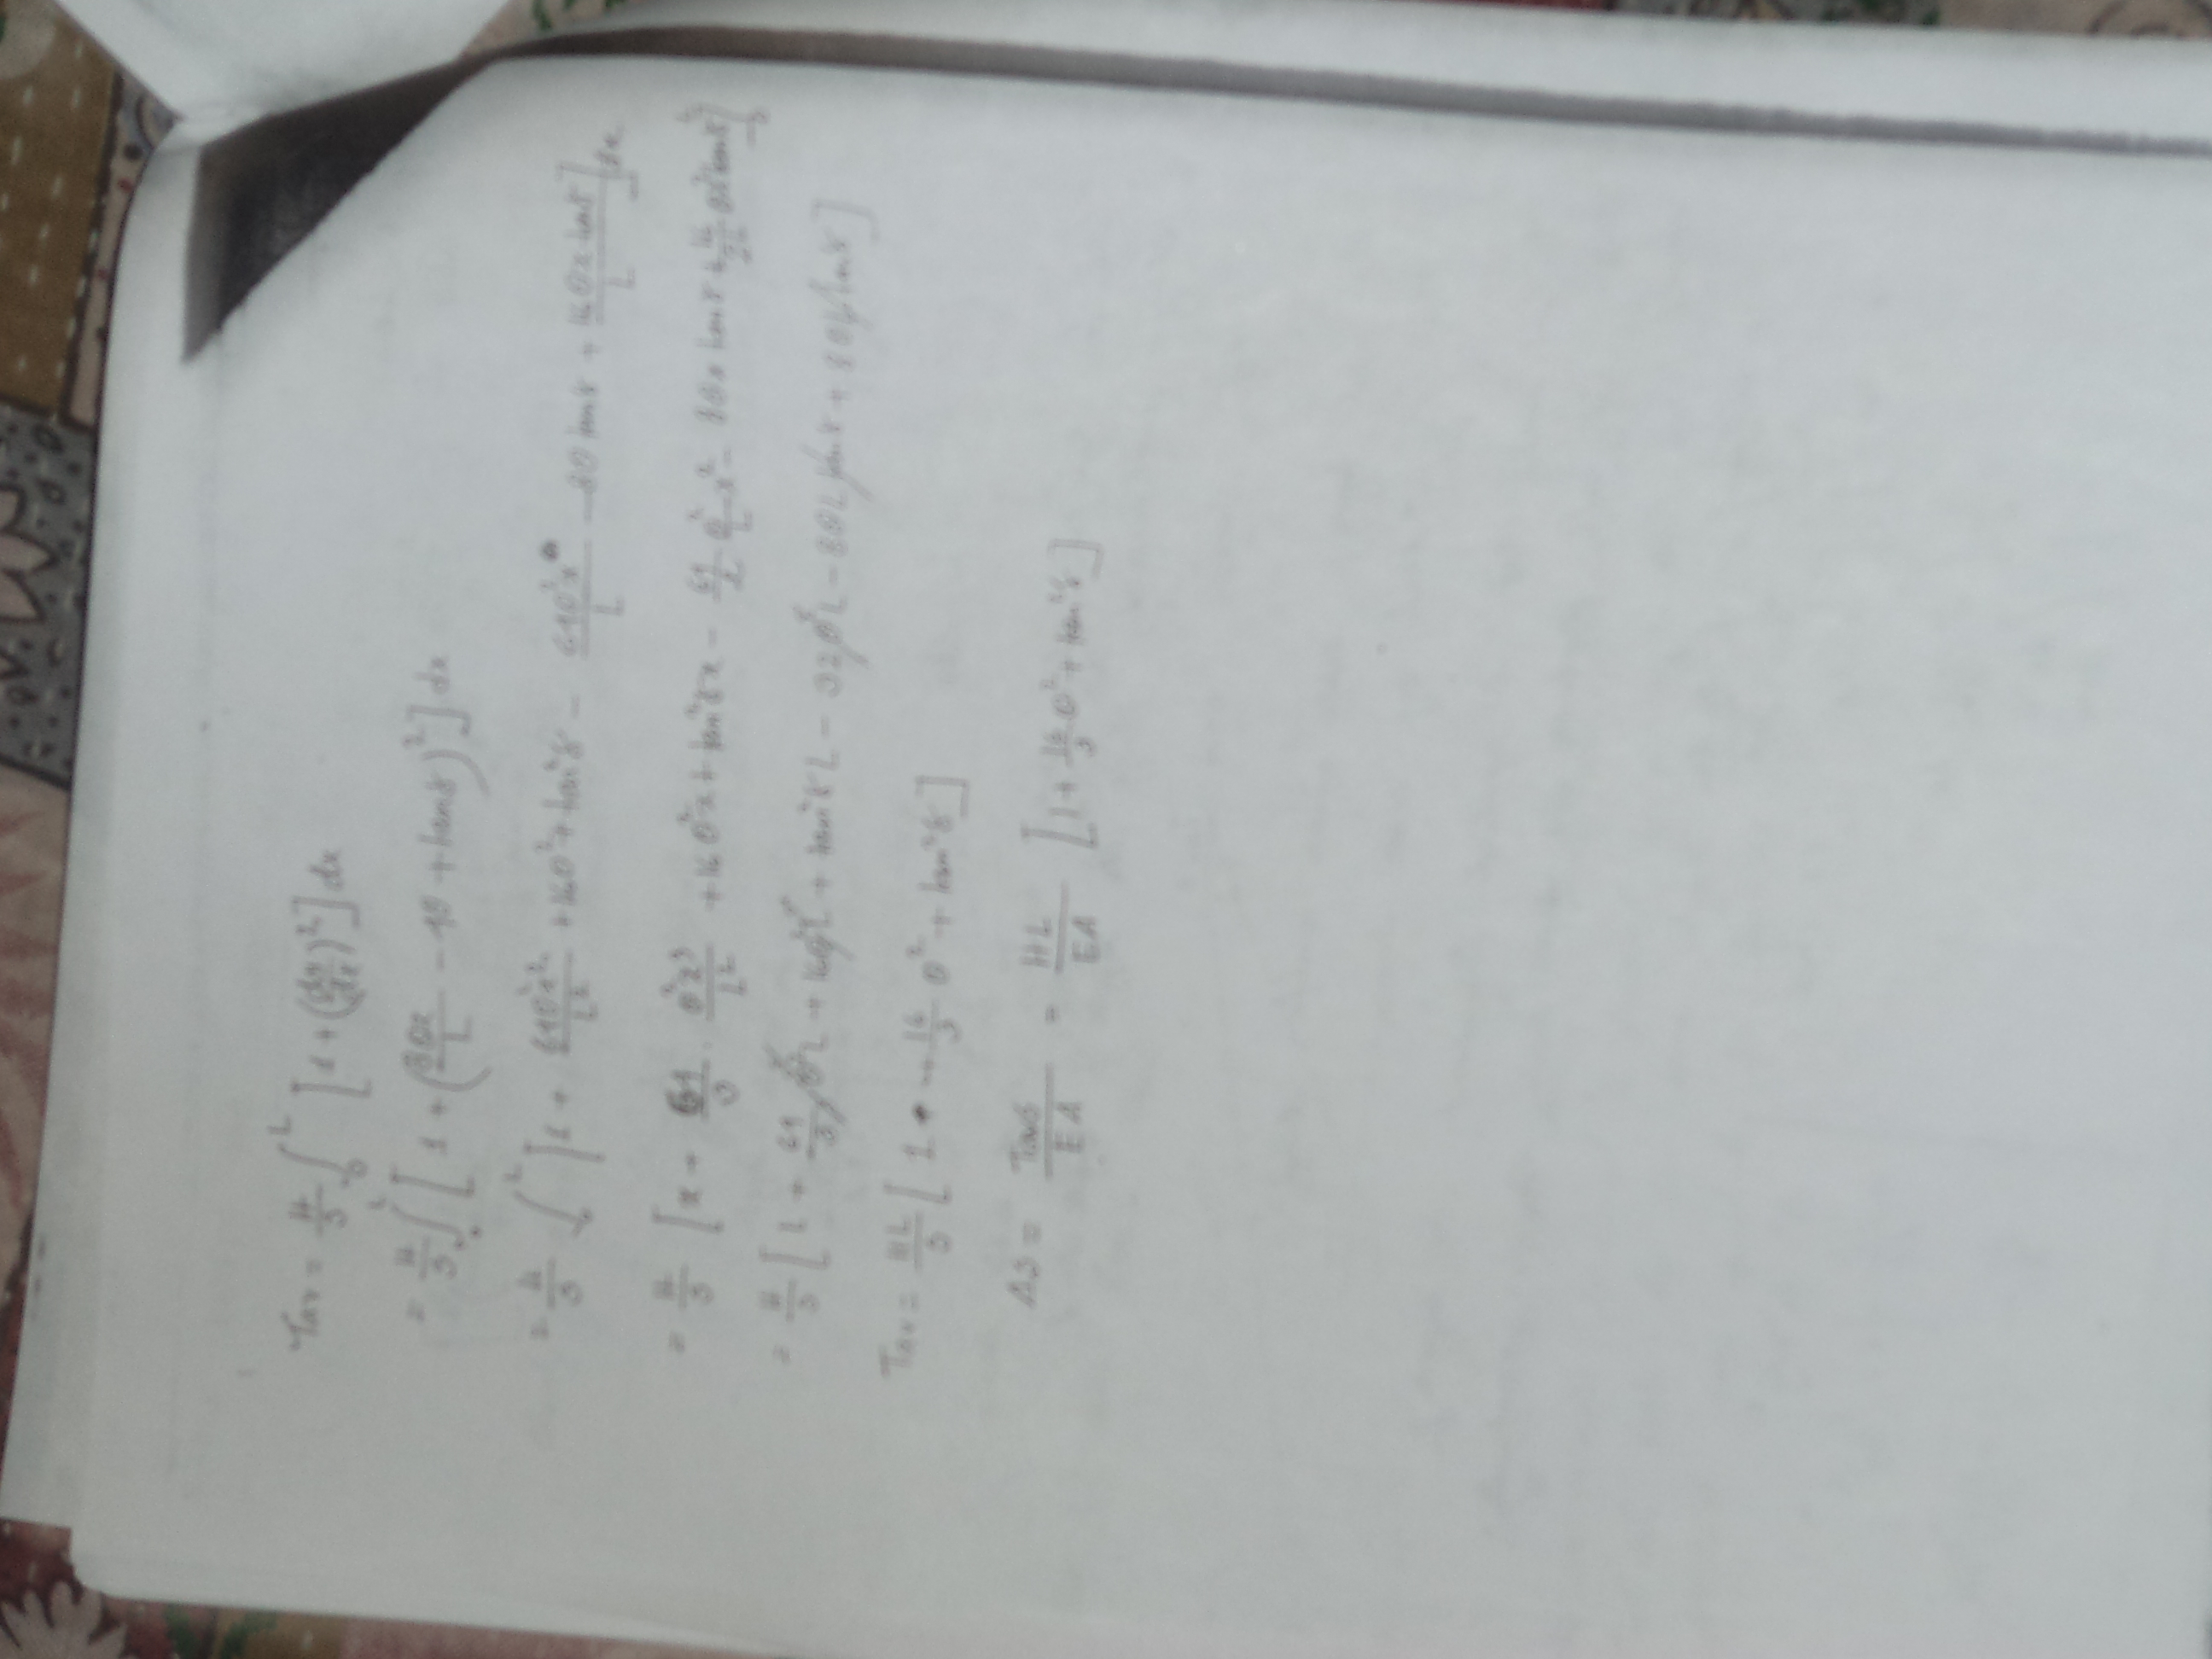 Tav = H/S ∫₀ᴸ [1 + (dy/dx)²] dx
= H/S ∫₀ᴸ [1 + (8θx/L − 4θ + tanγ)²] dx
= H/S ∫₀ᴸ [1 + 64θ²x²/L² + 16θ² + tan²γ − 64θ²x/L − 8θ tanγ + 16θx tanγ/L] dx
= H/S [x + 64/3 · θ²x³/L² + 16θ²x + tan²γx − 64/2 θ²/L x² − 8θx tanγ + 16/2L θx² tanγ]₀
= H/S [L + 64/3 θ²L + 16θ²L + tan²γL − 32θ²L − 8θL tanγ + 8θL tanγ]
Tav = HL/S [1 + 16/3 θ² + tan²γ]
ΔS = TavS/EA = HL/EA [1 + 16/3 θ² + tan²γ]